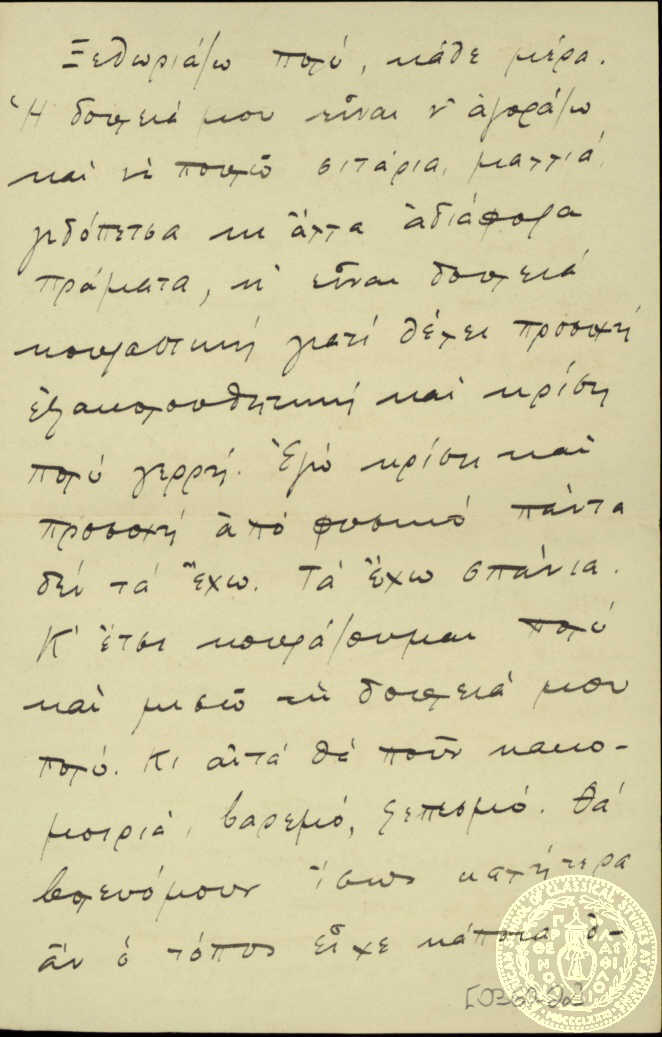 Ξεθωριάζω πολύ, κάθε μέρα.
Ἡ δουλειά μου εἶναι ν' ἀγοράζω
καὶ νὰ πουλῶ σιτάρια, μαλλιά,
γιδόπετσα κι ἄλλα ἀδιάφορα
πράματα, κι' εἶναι δουλειά
κουραστική γιατί θέλει προσοχή
ἐξακολουθητική καὶ κρίση
πολύ γερρή. Ἐγώ κρίση καὶ
προσοχή ἀπό φυσικό πάντα
δέν τά ἔχω. Τά ἔχω σπάνια.
Κ' ἔτσι κουράζουμαι πολύ
καὶ μισῶ τὴ δουλειά μου
πολύ. Κι αὐτά θά ποῦν κακο-
μοιριά, βαρεμό, ξεπεσμό. Θά
βολευόμουν ἴσως καλήτερα
ἄν ὁ τόπος εἶχε κάποια δι-
AMERICAN SCHOOL OF CLASSICAL STUDIES AT ATHENS
MDCCCLXXXI